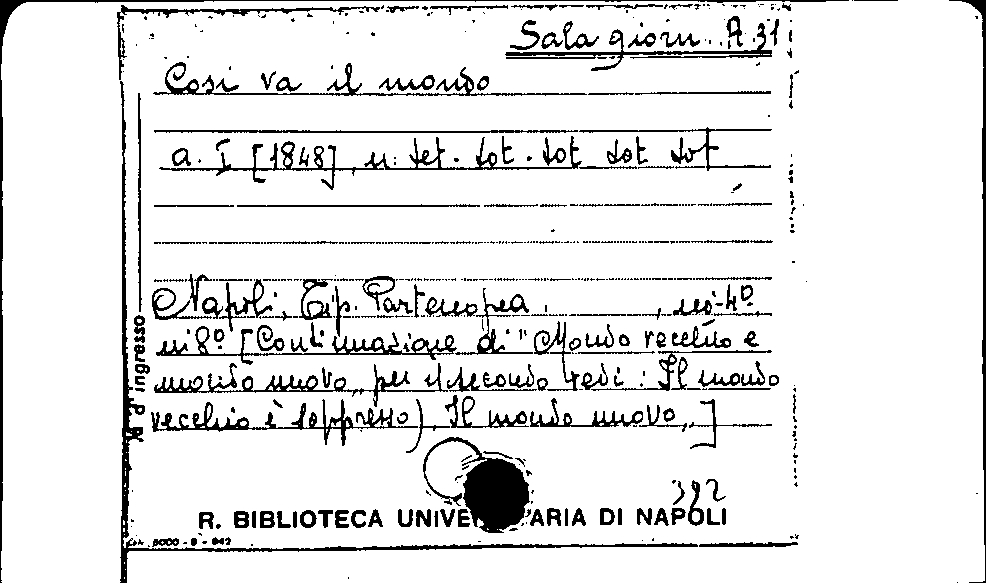 Sala giorn. A 31
Cosi va il mondo
a. I [1848], n: set. tot. tot tot tot
Napoli, Tip. Partenopea. , in-4º.
in 8º [Continuazione di "Mondo vecchio e
mondo nuovo„ per il secondo vedi: Il mondo
vecchio è soppresso). Il mondo nuovo„]
N. d'ingresso
392
R. BIBLIOTECA UNIVE ARIA DI NAPOLI